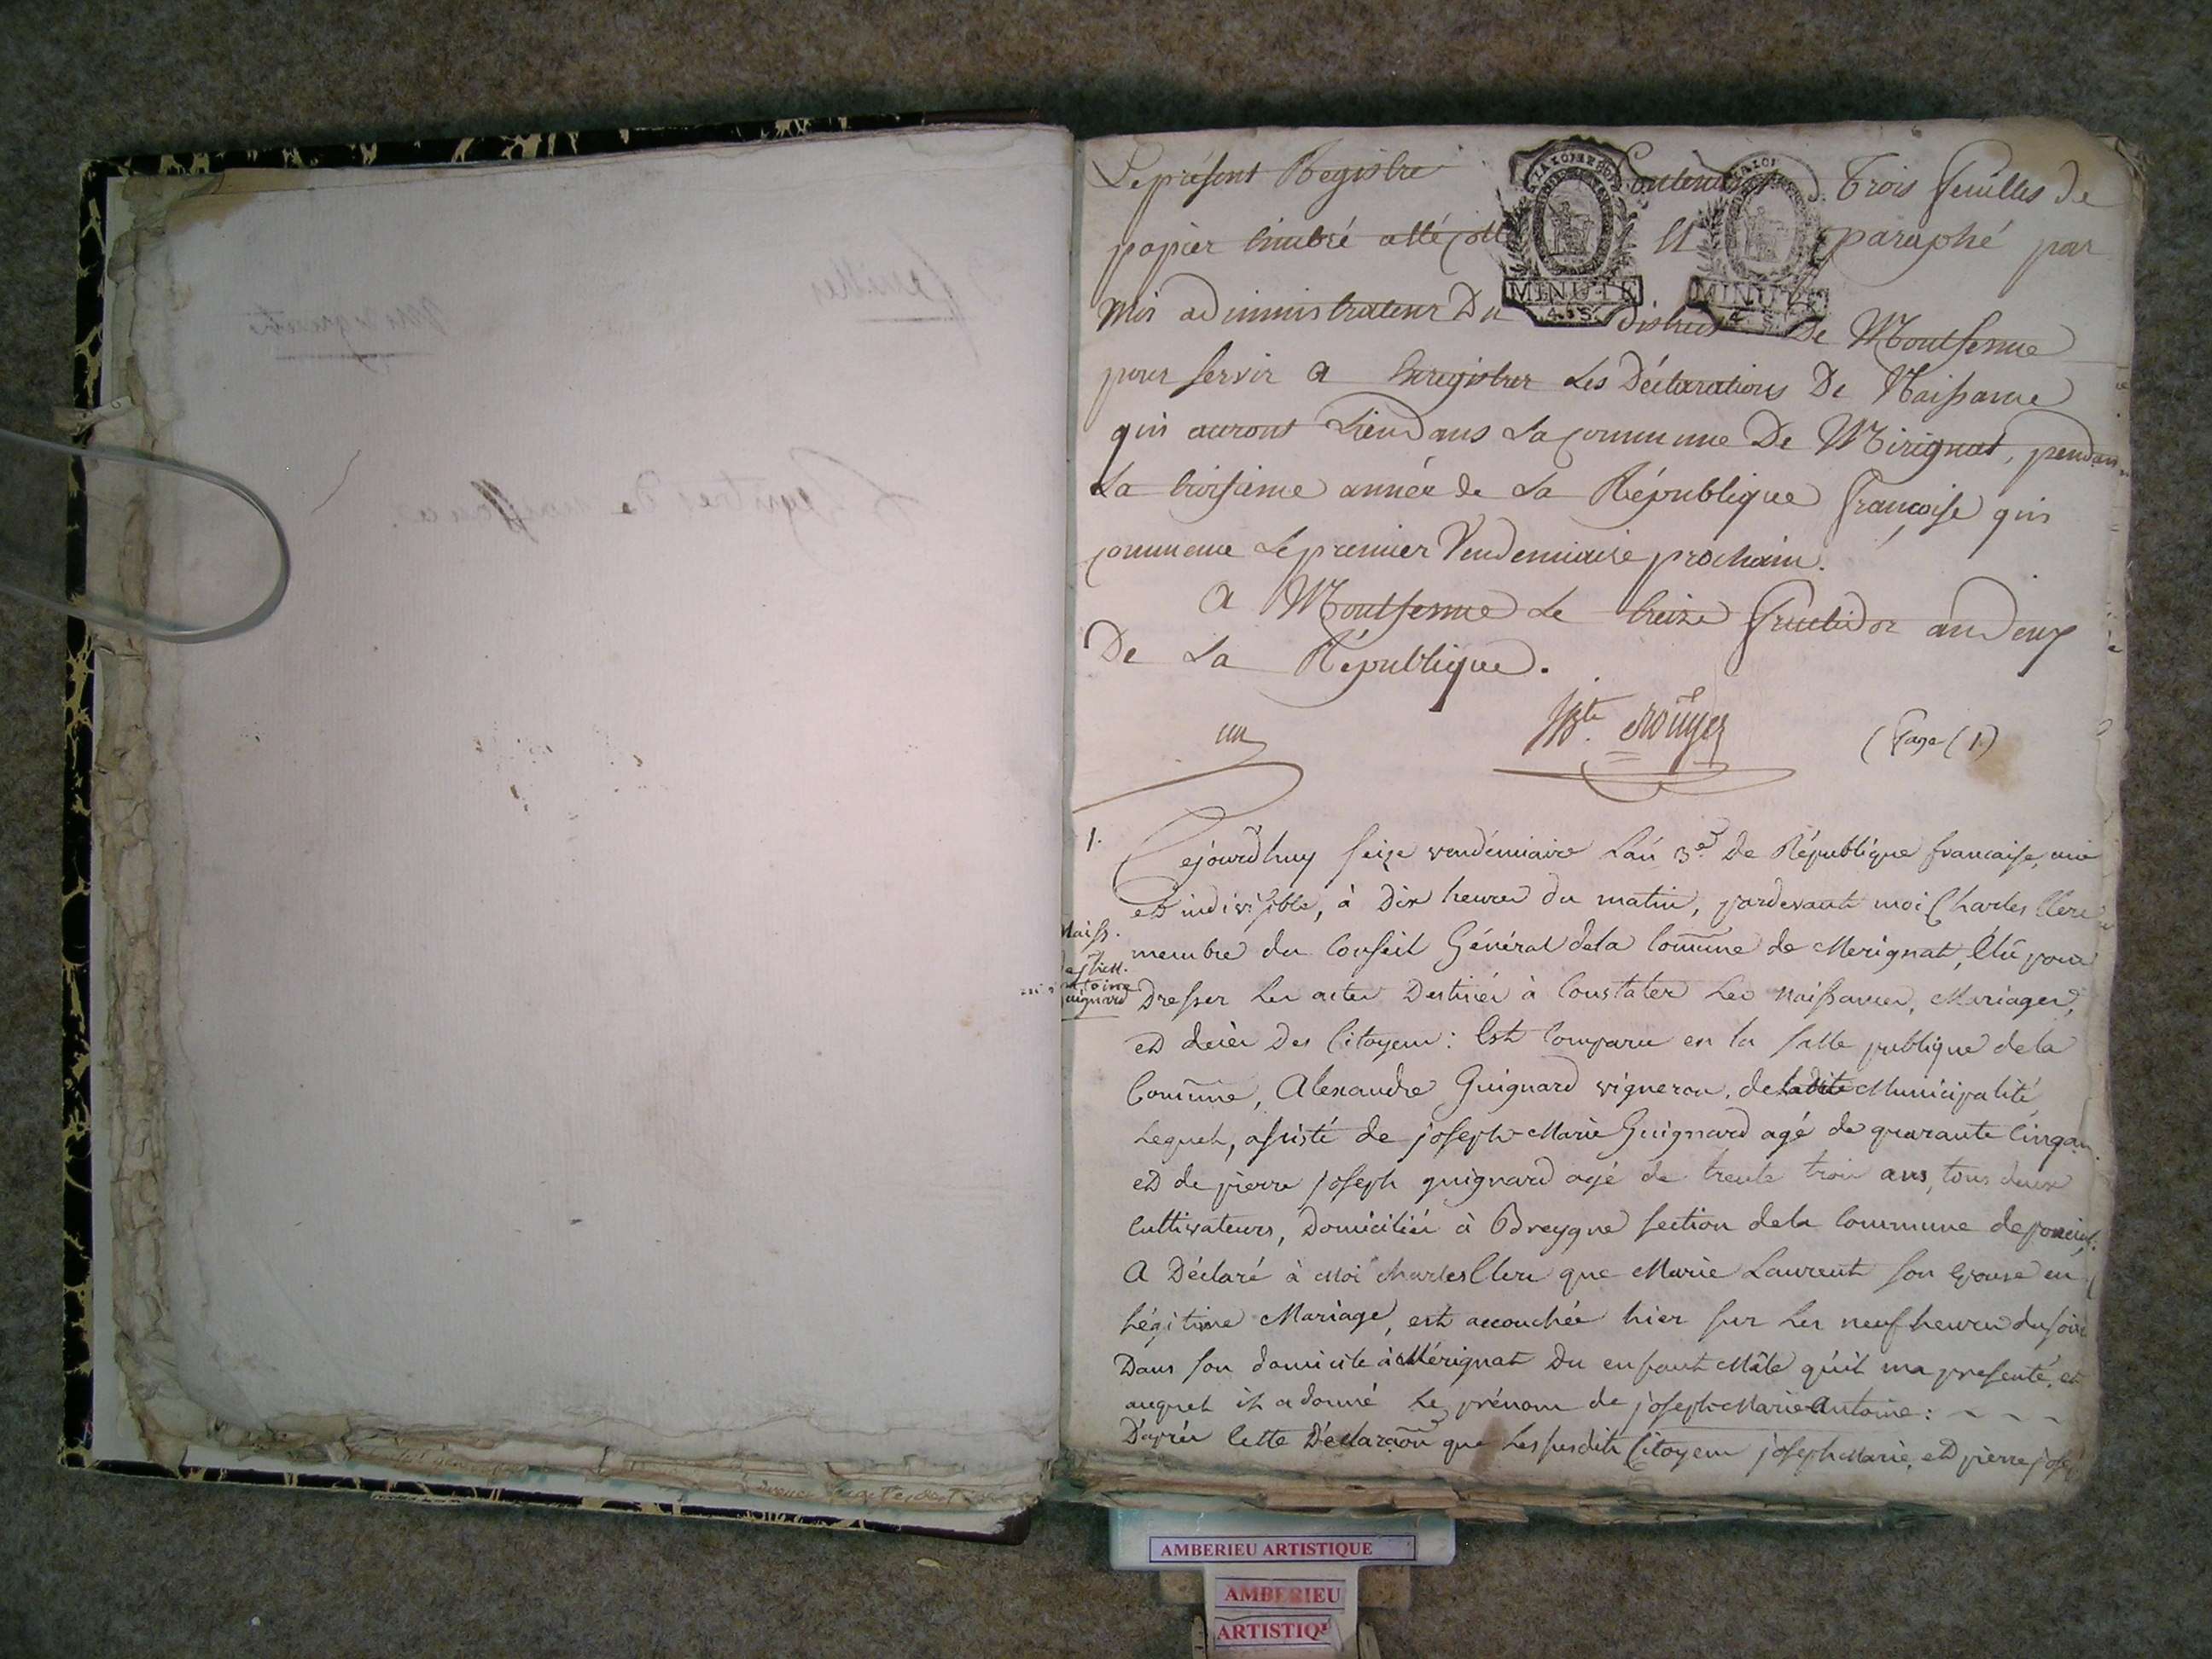 Le présent Registre Contenant Trois feuilles de
papier timbré a été cotté Et paraphé par
Moi administrateur Du district De Montferme
pour servir a Enregistrer Les Déclarations De Naissance
qui auront Lieu dans La commune De Mérignat, pendant
La troisieme année de La République française qui
commence Le premier Vendemiaire prochain.
A Montferme Le treize fructidor an Deux
De La République.
MINUTE
4. S.
MINUTE
un
(Page (1.)
1.
Cejourd'huy seize vendémiaire L'an 3e. De République francaise, une
et indivisible, à Dix heures du matin, pardevant moi Charles Clerc
membre du Conseil Général dela Commune de Merignat, Elû pour
Naiss.
Dresser Les actes Destinés à Constater Les Naissances, Mariages,
et décès Des Citoyens : Est Comparu en la salle publique dela
Commune, Alexandre Guignard vigneron, de la dite Municipalité
Lequel, assisté de joseph-Marie Guignard agé de quarante Cinq ans
et de pierre joseph guignard agé de trente trois ans, tous deux
Cultivateurs, Domiciliés à Breygne section dela Commune de poncin,
A Déclaré à Moi Charles Clerc que Marie Laurent son épouse en
Légitime Mariage, est accouchée hier sur Les neuf heures du soir
Dans son domicile à Mérignat Du enfant Mâle qu'il ma presenté, et
auquel il a donné Le prénom de joseph-Marie Antoine : ~ ~ ~
D'après Cette Déclaraon que Les susdits Citoyens joseph Marie, et pierre josep
AMBERIEU ARTISTIQUE
AMBERIEU
ARTISTIQ